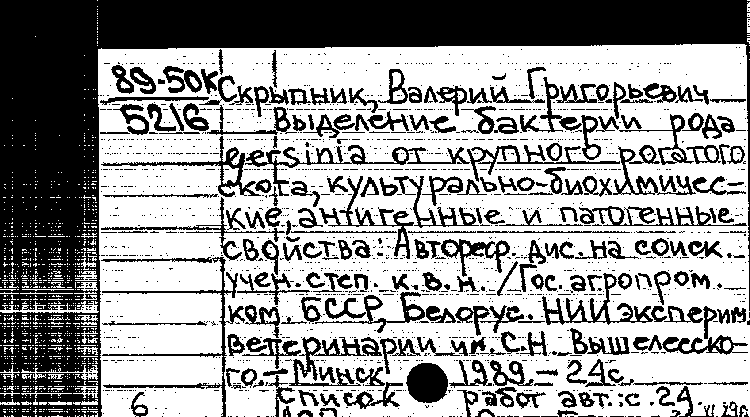 89-50К Скрыпник, Валерий Григорьевич
5216 Выделение бактерии рода
yersinia от крупного рогатого
скота, культурально-биохимичес=
кие, антигенные и патогенные
свойства: Автореф. дис. на соиск.
учен. степ. к.в.н. /Гос. агропром.
ком. БССР, Белорус. НИИ эксперим.
ветеринарии им. С.Н. Вышелесско-
го.-Минск, 1989.- 24с.
6 Список работ авт.: с. 24.